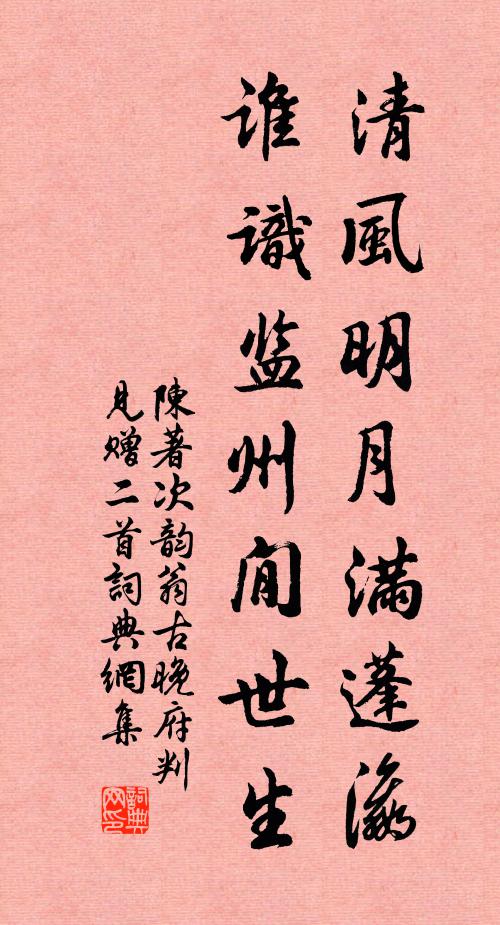 清風明月滿蓬瀛
誰識監州間世生
陳著次韵翁古晚府判
見贈二首詞典網集
詞典
网印